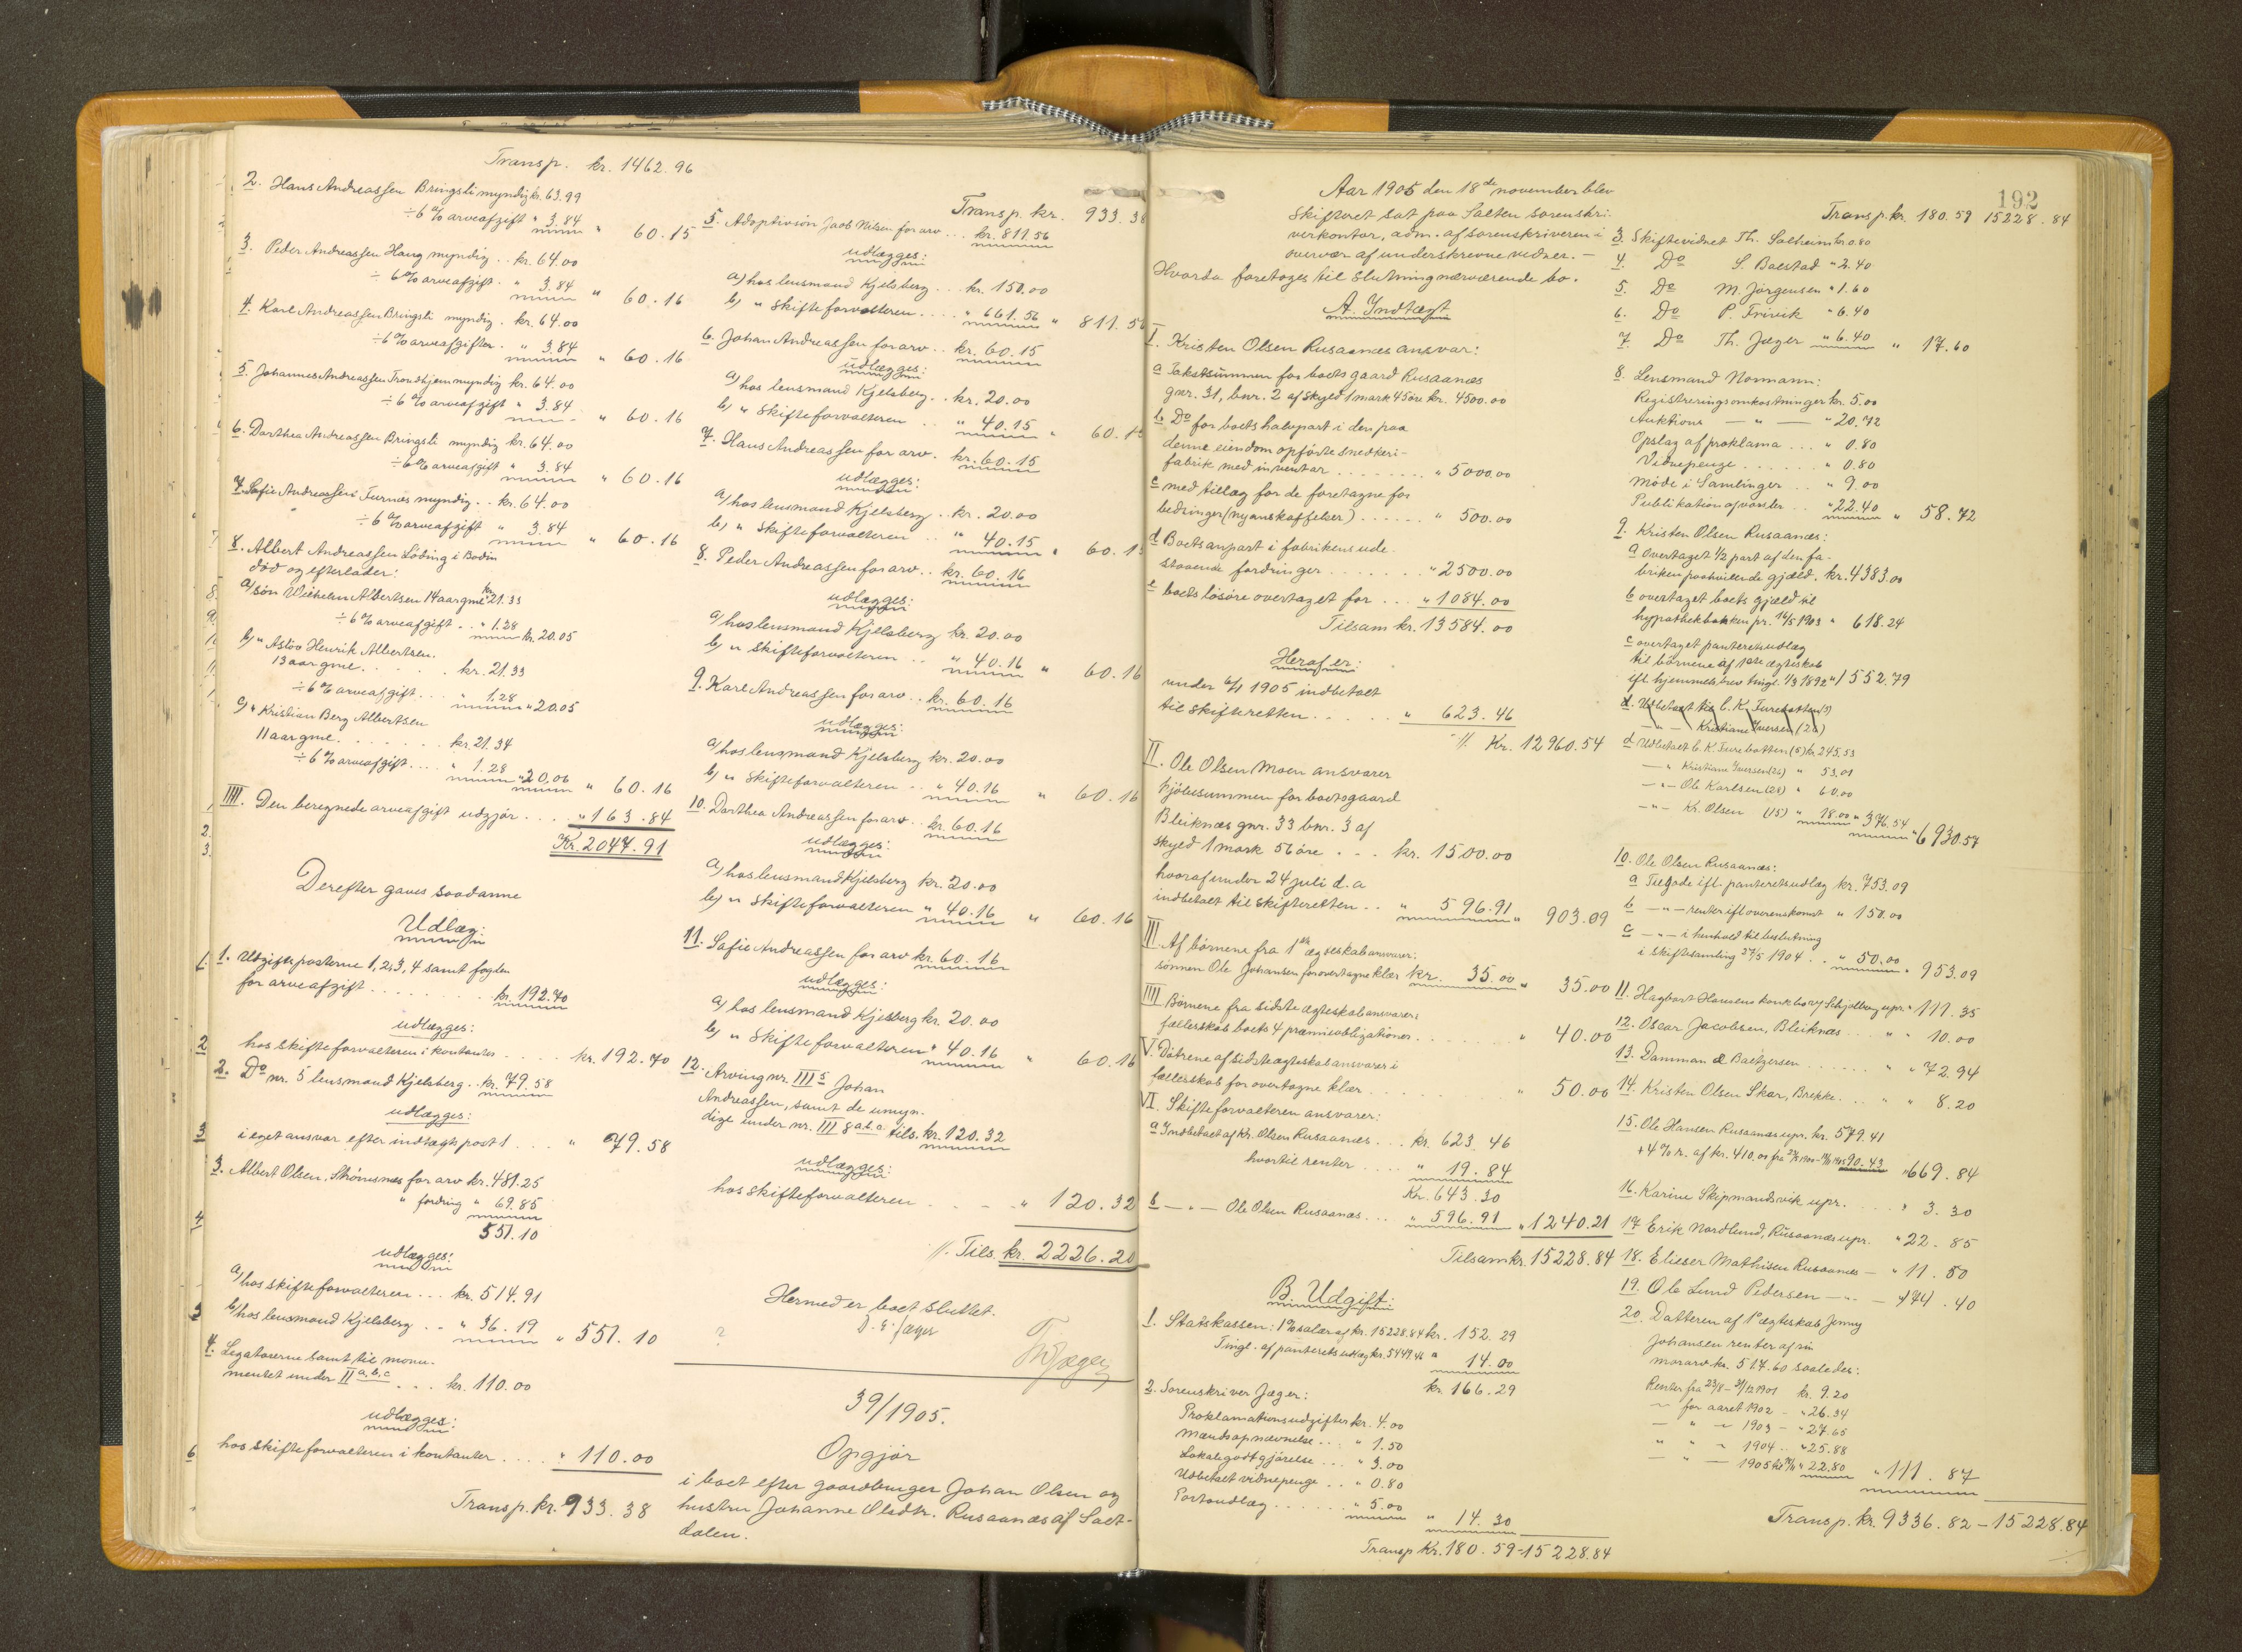 Transp. kr. 1462.96
2. Hans Andreassen Bringsli myndig kr. 63.99
÷ 6 % arveafgift " 3.84 " 60.15
3. Peder Andreassen Haug myndig . . kr. 64.00
÷ 6 % arveafgift . " 3.84 " 60.16
4. Karl Andreassen Bringsli myndig . kr. 64.00
÷ 6 % arveafgifter . " 3.84 " 60.16
5. Johannes Andreassen Trondhjem myndig kr. 64.00
÷ 6 % arveafgift " 3.84 " 60.16
6. Dorthea Andreassen Bringsli myndig kr. 64.00
÷ 6 % arveafgift " 3.84 " 60.16
7. Sofie Andreassen Furnes myndig . . kr. 64.00
÷ 6 % arveafgift " 3.84 " 60.16
8. Albert Andreassen Löding i Bodin
död og efterlader:
a) Sön Wilhelm Albertsen 14 aar gml. kr. 21.33
÷ 6 % arveafgift . . " 1.28 kr. 20.05
b) " Aslov Henrik Albertsen.
13 aar gml. . . . . kr. 21.33
÷ 6 % arveafgift . . . " 1.28 " 20.05
c) " Kristian Berg Albertsen
11 aar gml. . . . . . . kr. 21.34
÷ 6 % arveafgift . . . . " 1.28 " 20.06 " 60.16
IIII. Den beregnede arveafgift udgjör . . . . " 163.84
Kr. 2047.91
Derefter gaves saadanne
Udlæg:
1. Udgiftsposterne 1, 2, 3, 4 samt fogden
for arveafgift . . . . . . . kr. 192.70
udlægges:
hos skifteforvalteren i kontanter . . . . kr. 192.70
2. Do nr. 5 lensmand Kjelsberg . . kr. 79.58
udlægges:
i eget ansvar efter indtægts post 1 . . . " 79.58
3. Albert Olsen, Strömsnes for arv kr. 481.25
" fordring " 69.85
551.10
udlægges:
a) hos skifteforvalteren . . . kr. 514.91
b) hos lensmand Kjelsberg . . " 36.19 " 551.10
4. Legatarerne samt til monu-
mentet under II a, b, c . . . kr. 110.00
udlægges:
hos skifteforvalteren i kontanter . . . . " 110.00
Transp. kr. 933.38
Transp. kr. 933.38
5. Adoptivsön Jacob Nilsen for arv . . . kr. 811.56
udlægges:
a) hos lensmand Kjelsberg . . . kr. 150.00
b) " skifteforvalteren . . . . " 661.56 " 811.56
6. Johan Andreassen for arv . . kr. 60.15
udlægges:
a) hos lensmand Kjelsberg . . kr. 20.00
b) " skifteforvalteren . . " 40.15 " 60.15
7. Hans Andreassen for arv . kr. 60.15
udlægges:
a) hos lensmand Kjelsberg . . kr. 20.00
b) " skifteforvalteren . . " 40.15 " 60.15
8. Peder Andreassen for arv . . kr. 60.16
udlægges:
a) hos lensmand Kjelsberg kr. 20.00
b) " skifteforvalteren . . " 40.16 " 60.16
9. Karl Andreassen for arv . . kr. 60.16
udlægges:
a) hos lensmand Kjelsberg kr. 20.00
b) " skifteforvalteren . . " 40.16 " 60.16
10. Dorthea Andreassen for arv . . kr. 60.16
udlægges:
a) hos lensmand Kjelsberg kr. 20.00
b) " skifteforvalteren " 40.16 " 60.16
11. Sofie Andreassen for arv kr. 60.16
udlægges:
a) hos lensmand Kjelsberg kr. 20.00
b) " skifteforvalteren " 40.16 " 60.16
12. Arving nr. III 5 Johan
Andreassen, samt de umyn-
dige under nr. III 8 a, b, c. tils. kr. 120.32
udlægges:
hos skifteforvalteren . . . . " 120.32
//. Tils. kr. 2226.20
Hermed er boet sluttet.
D. E. Jæger
Th Jæger
39/1905.
Opgjör
i boet efter gaardbruger Johan Olsen og
hustru Johanne Olsdtr. Rusaanæs af Salt-
dalen.
192
Aar 1905 den 18de november blev
skifteret sat paa Salten sorenskri-
verkontor, adm. af sorenskriveren i
overvær af underskrevne vidner. —
Hvorda foretoges til slutning nærværende bo.
A. Indtægt
I. Kristen Olsen Rusaanæs ansvar:
a Takstsummen for boets gaard Rusaanæs
gnr. 31, bnr. 2 af skyld 1 mark 45 öre kr. 4500.00
b Do for boets halvpart i den paa
denne eiendom opförte snedkeri-
fabrik med inventar . . . . . . . " 5000.00
c med tillæg for de foretagne for
bedringer (nyanskaffelser) . . . . . . " 500.00
d Boets anpart i fabrikens ude-
staaende fordringer . . . . . . . " 2500.00
e boets lösöre overtaget for . . . " 1084.00
Tilsam kr. 13584.00
Heraf er:
under 6/1 1905 indbetalt
til skifteretten . . . . . " 623.46
//. Kr. 12960.54
II. Ole Olsen Moen ansvarer
Kjöbesummen for boets gaard
Bleiknæs gnr. 33 bnr. 3 af
skyld 1 mark 56 öre . . . kr. 1500.00
hvoraf under 24 juli d. a
indbetalt til skifteretten . . " 596.91 " 903.09
III. Af börnene fra 1ste ægteskab ansvarer:
sönnen Ole Johansen for overtagne klær kr. 35.00 " 35.00
IIII. Börnene fra sidste ægteskab ansvarer i
fællesskab boets 4 præmieobligationer . . . . . . " 40.00
V. Dötrene af sidste ægteskab ansvarer i
fællesskab for overtagne klær . . . . . . . . " 50.00
VI. Skifteforvalteren ansvarer:
a Indbetalt af Kr. Olsen Rusaanæs . . . kr. 623.46
hvortil renter . . . . " 19.84
Kr. 643.30
b — " — Ole Olsen Rusaanæs . . . " 596.91 " 1240.21
Tilsam kr. 15228.84
B. Udgift:
1. Statskassen: 1% salær af kr. 15228.84 kr. 152.29
Tingl. af panteretsudlæg kr. 5449.46 " 14.00
kr. 166.29
2. Sorenskriver Jæger:
Proklamationsudgifter kr. 4.00
Mandsopnævnelse . . . " 1.50
Lokalegodtgjörelse . . . " 3.00
Udbetalt vidnepenge . . " 0.80
Portoudlæg . . . . . . " 5.00 " 14.30
Transp. Kr. 180.59 - 15228.84
Transp. kr. 180.59 15228.84
3. Skiftevidnet Th. Solheim kr. 0.80
4. Do S. Baestad " 2.40
5. Do M. Jörgensen " 1.60
6. Do P. Trivik " 6.40
7. Do Th. Jæger " 6.40 " 17.60
8. Lensmand Normann:
Registreringsomkostninger kr. 5.00
Auktions — " — " 20.72
Opslag af proklama . . . " 0.80
Vidnepenge . . . . . . " 0.80
Möde i Samlinger . . " 9.00
Publikation af varsler . . " 22.40 " 58.72
9. Kristen Olsen Rusaanæs:
a Overtaget 1/2 part af den fa-
briken paahvilende gjæld. kr. 4383.00
b overtaget boets gjæld til
hypothekbanken pr. 14/5 1903 " 618.24
c overtaget panteretsudlæg
til börnene af 1ste ægteskab
ifl. hjemmelsbrev tingl. 1/3 1892 " 1552.79
d. Udbetalt til C. K. Furebotten (5)
— " — Kristiane Iversen (26)
d Udbetalt C. K. Furebotten (5) kr. 245.53
— " Kristiane Iversen (26) " 53.01
— " — Ole Karlsen (28) " 60.00
— " — Kr. Olsen (15) " 18.00 " 376.54 " 6930.57
10. Ole Olsen Rusaanæs:
a Tilgode ifl. panteretsudlæg kr. 753.09
b — " — renter ifl overenskomst " 150.00
c — " — i henhold til beslutning
i skiftesamling 27/5 1904 . . " 50.00 " 953.09
11. Hagbart Hansens konkbo v/ Schjölberg upr. " 111.35
12. Oscar Jacobsen, Bleiknæs . . " " 10.00
13. Damman & Baetzersen . . . . . . " " 72.94
14. Kristen Olsen Skar, Brekke . . . " " 8.20
15. Ole Hansen Rusaanæs upr. kr. 579.41
+ 4 % r. af kr. 410.00 90.43 " 669.84
16. Karine Skipmandsvik upr. . . . . " 3.30
17 Erik Nordlund, Rusaanæs upr. " 22.85
18. Elieser Mathisen Rusaanæs — " 11.50
19. Ole Lund Pedersen — " — " 174.40
20. Datteren af 1ste ægteskab Jenny
Johansen renter af sin
morarv kr. 517.60 saaledes:
Renter fra 23/8 - 31/12 1901 kr. 9.20
— for aaret 1902 — " 26.34
— " — 1903 — " 27.65
" " — 1904 . . " 25.88
— " — 1905 til 18/11 " 22.80 " 111.87
Transp. kr. 9336.82 — 15228.84